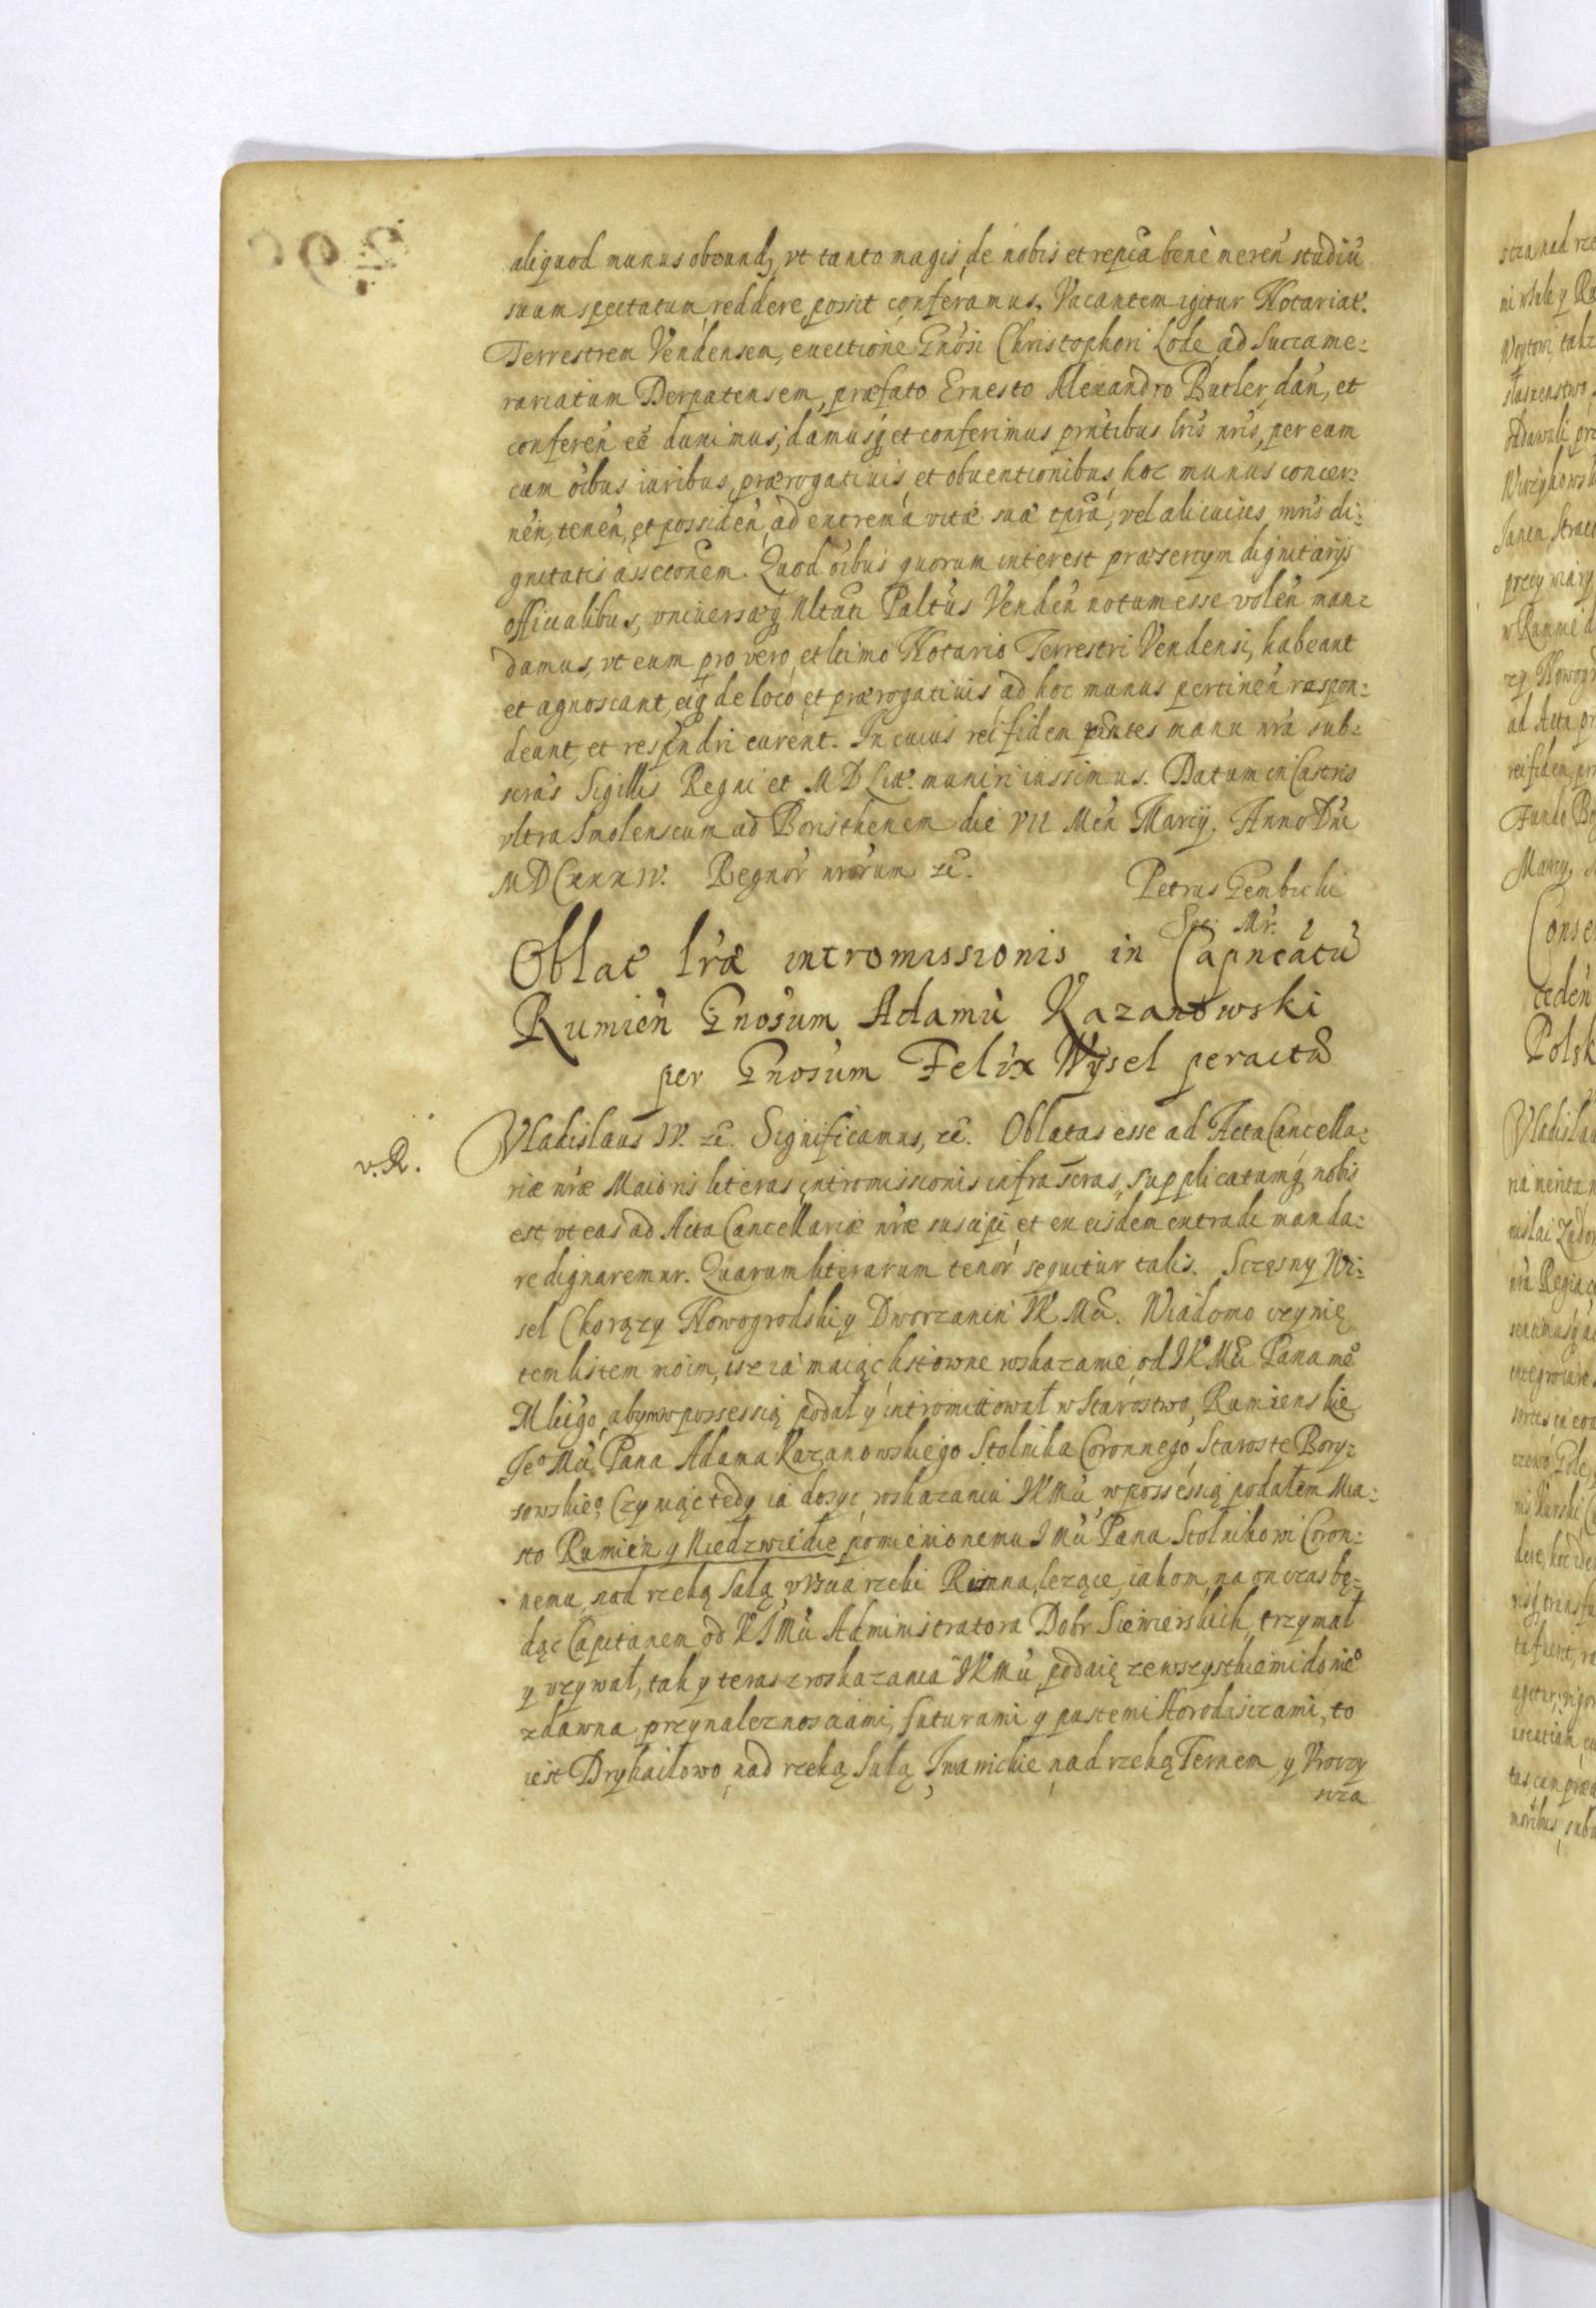 aliquod munus obeund, vt tanto magis, de nobis et repca benè meren studiu
suum spectatum, reddere, possit conferamus. Vacantem igitur Notariat.
Terrestrem Vendensem, euectione Gnosi Christophori Lode, ad Succame:
rariatum Derpatensem, præfato Ernesto Alexandro Butler, dan, et
conferen ee duximus; damusq et conferimus pntibus lris nris, per eum
cum oibus iuribus, prærogatiuis, et obuentionibus, hoc munus concer:
nen, tenen, et possiden, ad extrema vitæ suæ tpra, vel alicuius mris di:
gnitatis assecónem. Quod oibus quorum interest præsertym dignitarijs
officialibus, vniuersæq Nltati Paltus Venden notum esse volen man:
damus, vt eum pro vero, et ltimo Notario Terrestri Vendensi, habeant
et agnoscant, eiq de loco, et prærogatiuis ad hoc munus pertinen respon:
deant, et respondri curent. In cuius rei fidem pntes manu nra sub:
scras Sigillis Regni et M D Lit. muniri iussimus. Datum in Castris
vltra Smolenscum ad Boristhenem die VII Men Marcij. Anno Dni
MDCXXXIV. Regnor nrorum ec.
Petrus Gembicki
Sec. Mr.
Oblat lræ intromissionis in Capneatu
Rumien Gnosum Adamu Kazanowski
per Gnosum Felix Wysel peracta
v. R.
Vladislaus IV. ec. Significamus, ec. Oblatas esse ad Acta Cancella:
riæ nræ Maioris literas intromissionis infra scras, supplicatumq nobis
est, vt eas ad Acta Cancellariæ nræ suscipi, et ex eisdem extradi manda:
re dignaremur. Quarum literarum tenor sequitur talis. Sczęsny Wi:
sel Chorązy Nowogrodski y Dworzanin JK Mci. Wiadomo czynię
tem listem moim, isz ia maiąc listowne roskazanie od JK Mci Pana me
Mlciwgo, abym w possessią podał y intromittował w Starostwo, Rumienskie
Jeo Mci Pana Adama Kazanowskiego Stolnika Coronnego, Staroste Bory:
sowskieo. Czyniąc tedy ia dosyc roskazaniu JKMci w possessią podałem Mia:
sto Rumien y Niedzwiedie pomienionemu J Mci Panu Stolnikowi Coron:
nemu, nad rzeką Sułą, v Vscia rzeki Rumna, lezące, iakom, na on czas bę:
dąc Capitanem od KJMci Administratora Dobr Siewierskich, trzymał
y vzywał, tak y teras z roskazania JKMci podaię ze wszystkiemi do nieo
zdawna przynaleznosciami, futurami y pustemi Horodisczami, to
iest Drykaiłowo, nad rzeką Sułą, Iwanickie nad rzeką Ternem, y Vroczy
scza